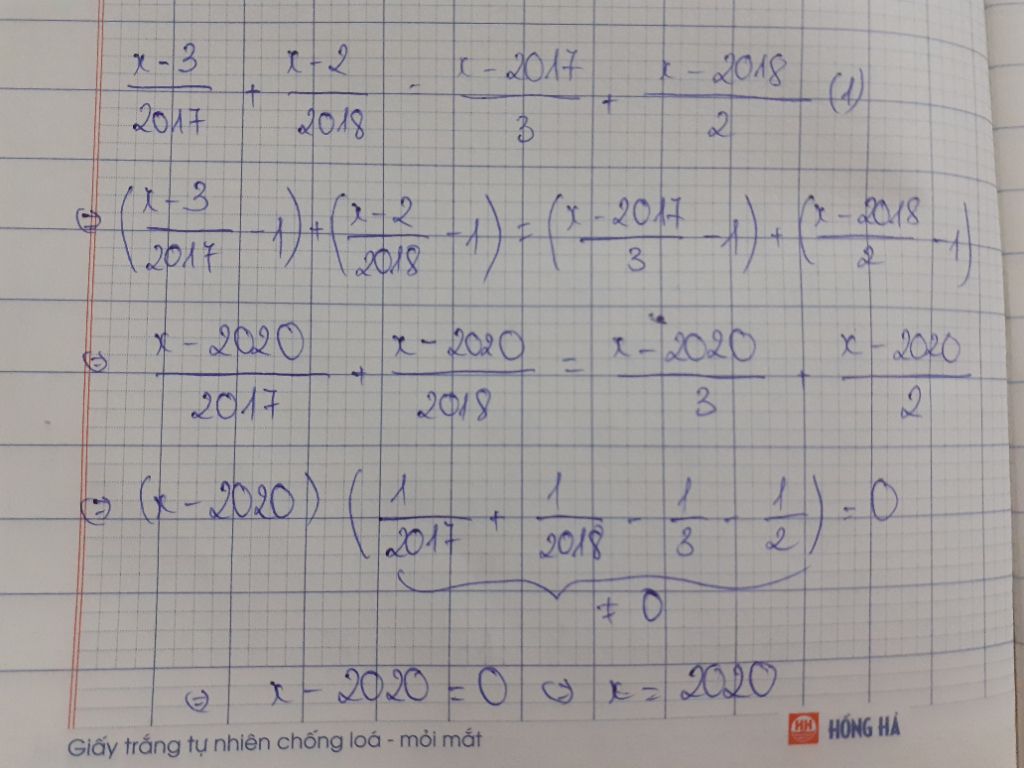 x-3/2017 + x-2/2018 = x-2017/3 + x-2018/2 (1)
⇔ (x-3/2017 - 1) + (x-2/2018 - 1) = (x-2017/3 - 1) + (x-2018/2 - 1)
⇔ x-2020/2017 + x-2020/2018 = x-2020/3 + x-2020/2
⇔ (x-2020) (1/2017 + 1/2018 - 1/3 - 1/2) = 0
≠ 0
⇔ x - 2020 = 0 ⇔ x = 2020
Giấy trắng tự nhiên chống loá - mỏi mắt
HH HỒNG HÀ